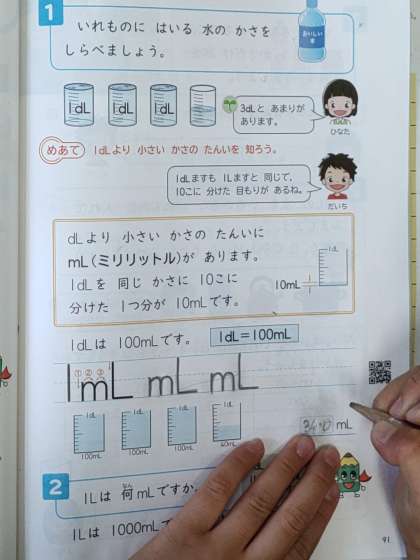 1
いれものに はいる 水の かさを
しらべましょう。
おいしい
水
1dL 1dL 1dL
3dLと あまりが
あります。
ひなた
めあて 1dLより 小さい かさの たんいを 知ろう。
1dLますも 1Lますと 同じで、
10こに 分けた 目もりが あるね。
だいち
dLより 小さい かさの たんいに
mL(ミリリットル)が あります。
1dLを 同じ かさに 10こに
分けた 1つ分が 10mLです。
1dL
10mL
1dLは 100mLです。 1dL=100mL
① ② ③
mL mL mL
1dL 1dL 1dL 1dL
100mL 100mL 100mL
340 mL
2
1Lは 何mLですか
なん
1Lは 1000mLで
91